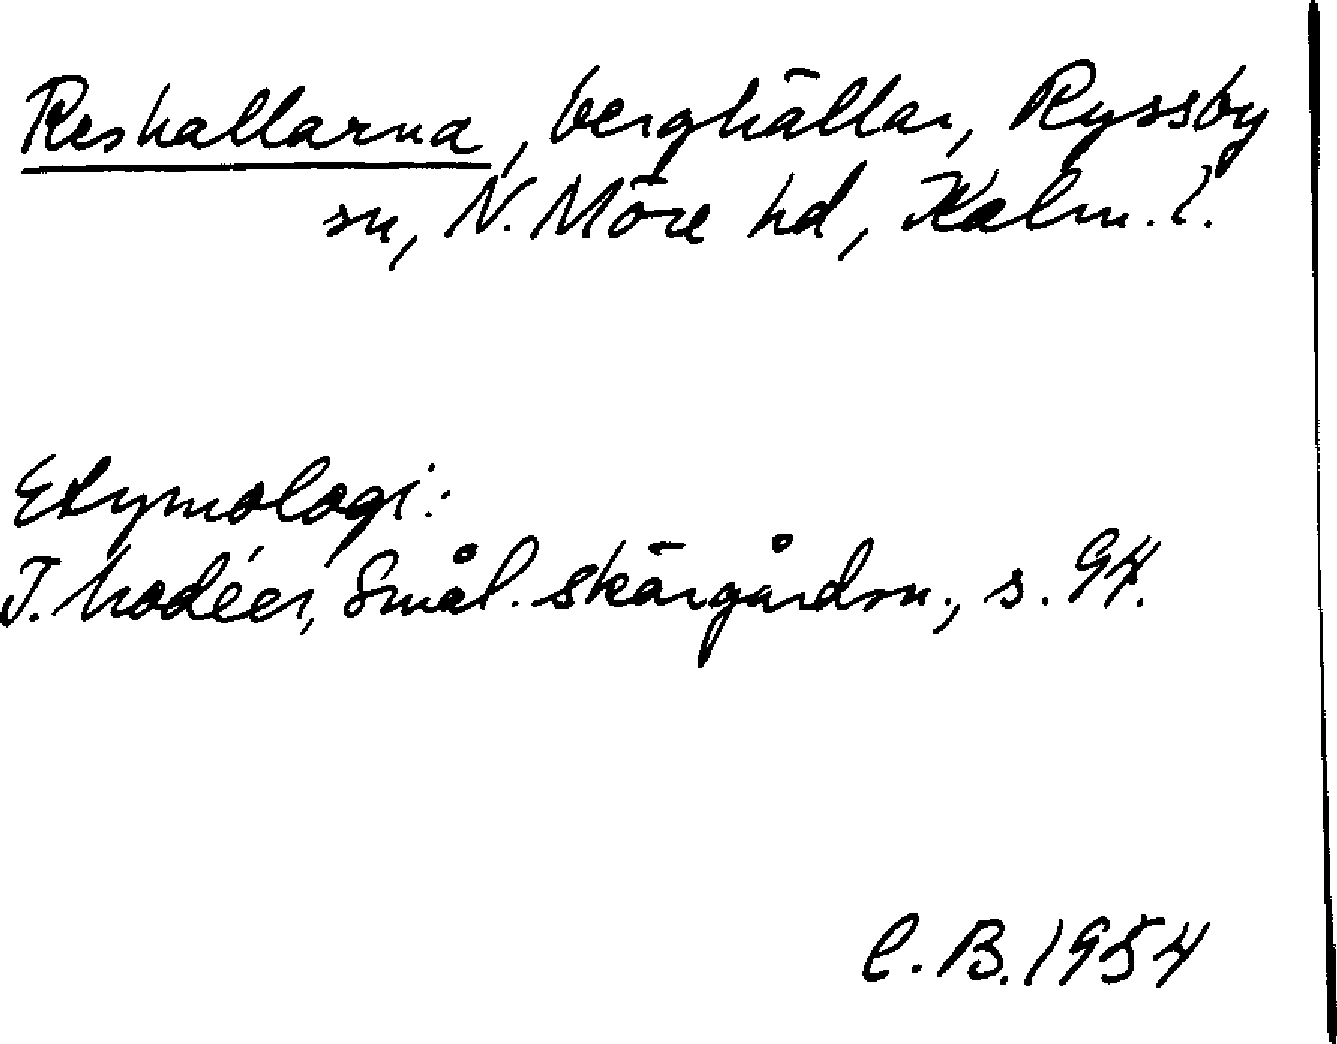 Reshallarna, berghällar, Ryssby
sn, N. Möre hd, Kalm. l.
Etymologi:
I. Modéer, Smål. skärgårdsn., s. 94.
C. B. 1954